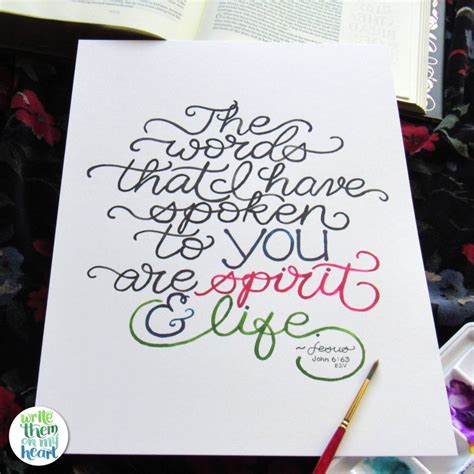 The
words
that I have
spoken
to you
are spirit
& life.
~ Jesus
John 6:63
ESV
write
them
on my
heart